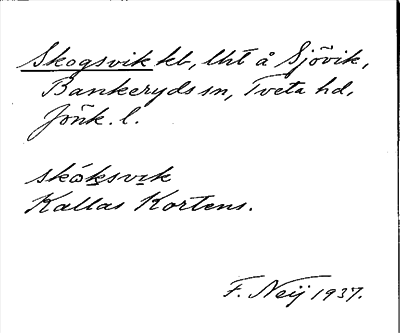 Skogsvik kb, lht å Sjövik,
Bankeryds sn, Tveta hd,
Jönk. l.
skóksvik
Kallas Kortens.
F. Neij 1937.